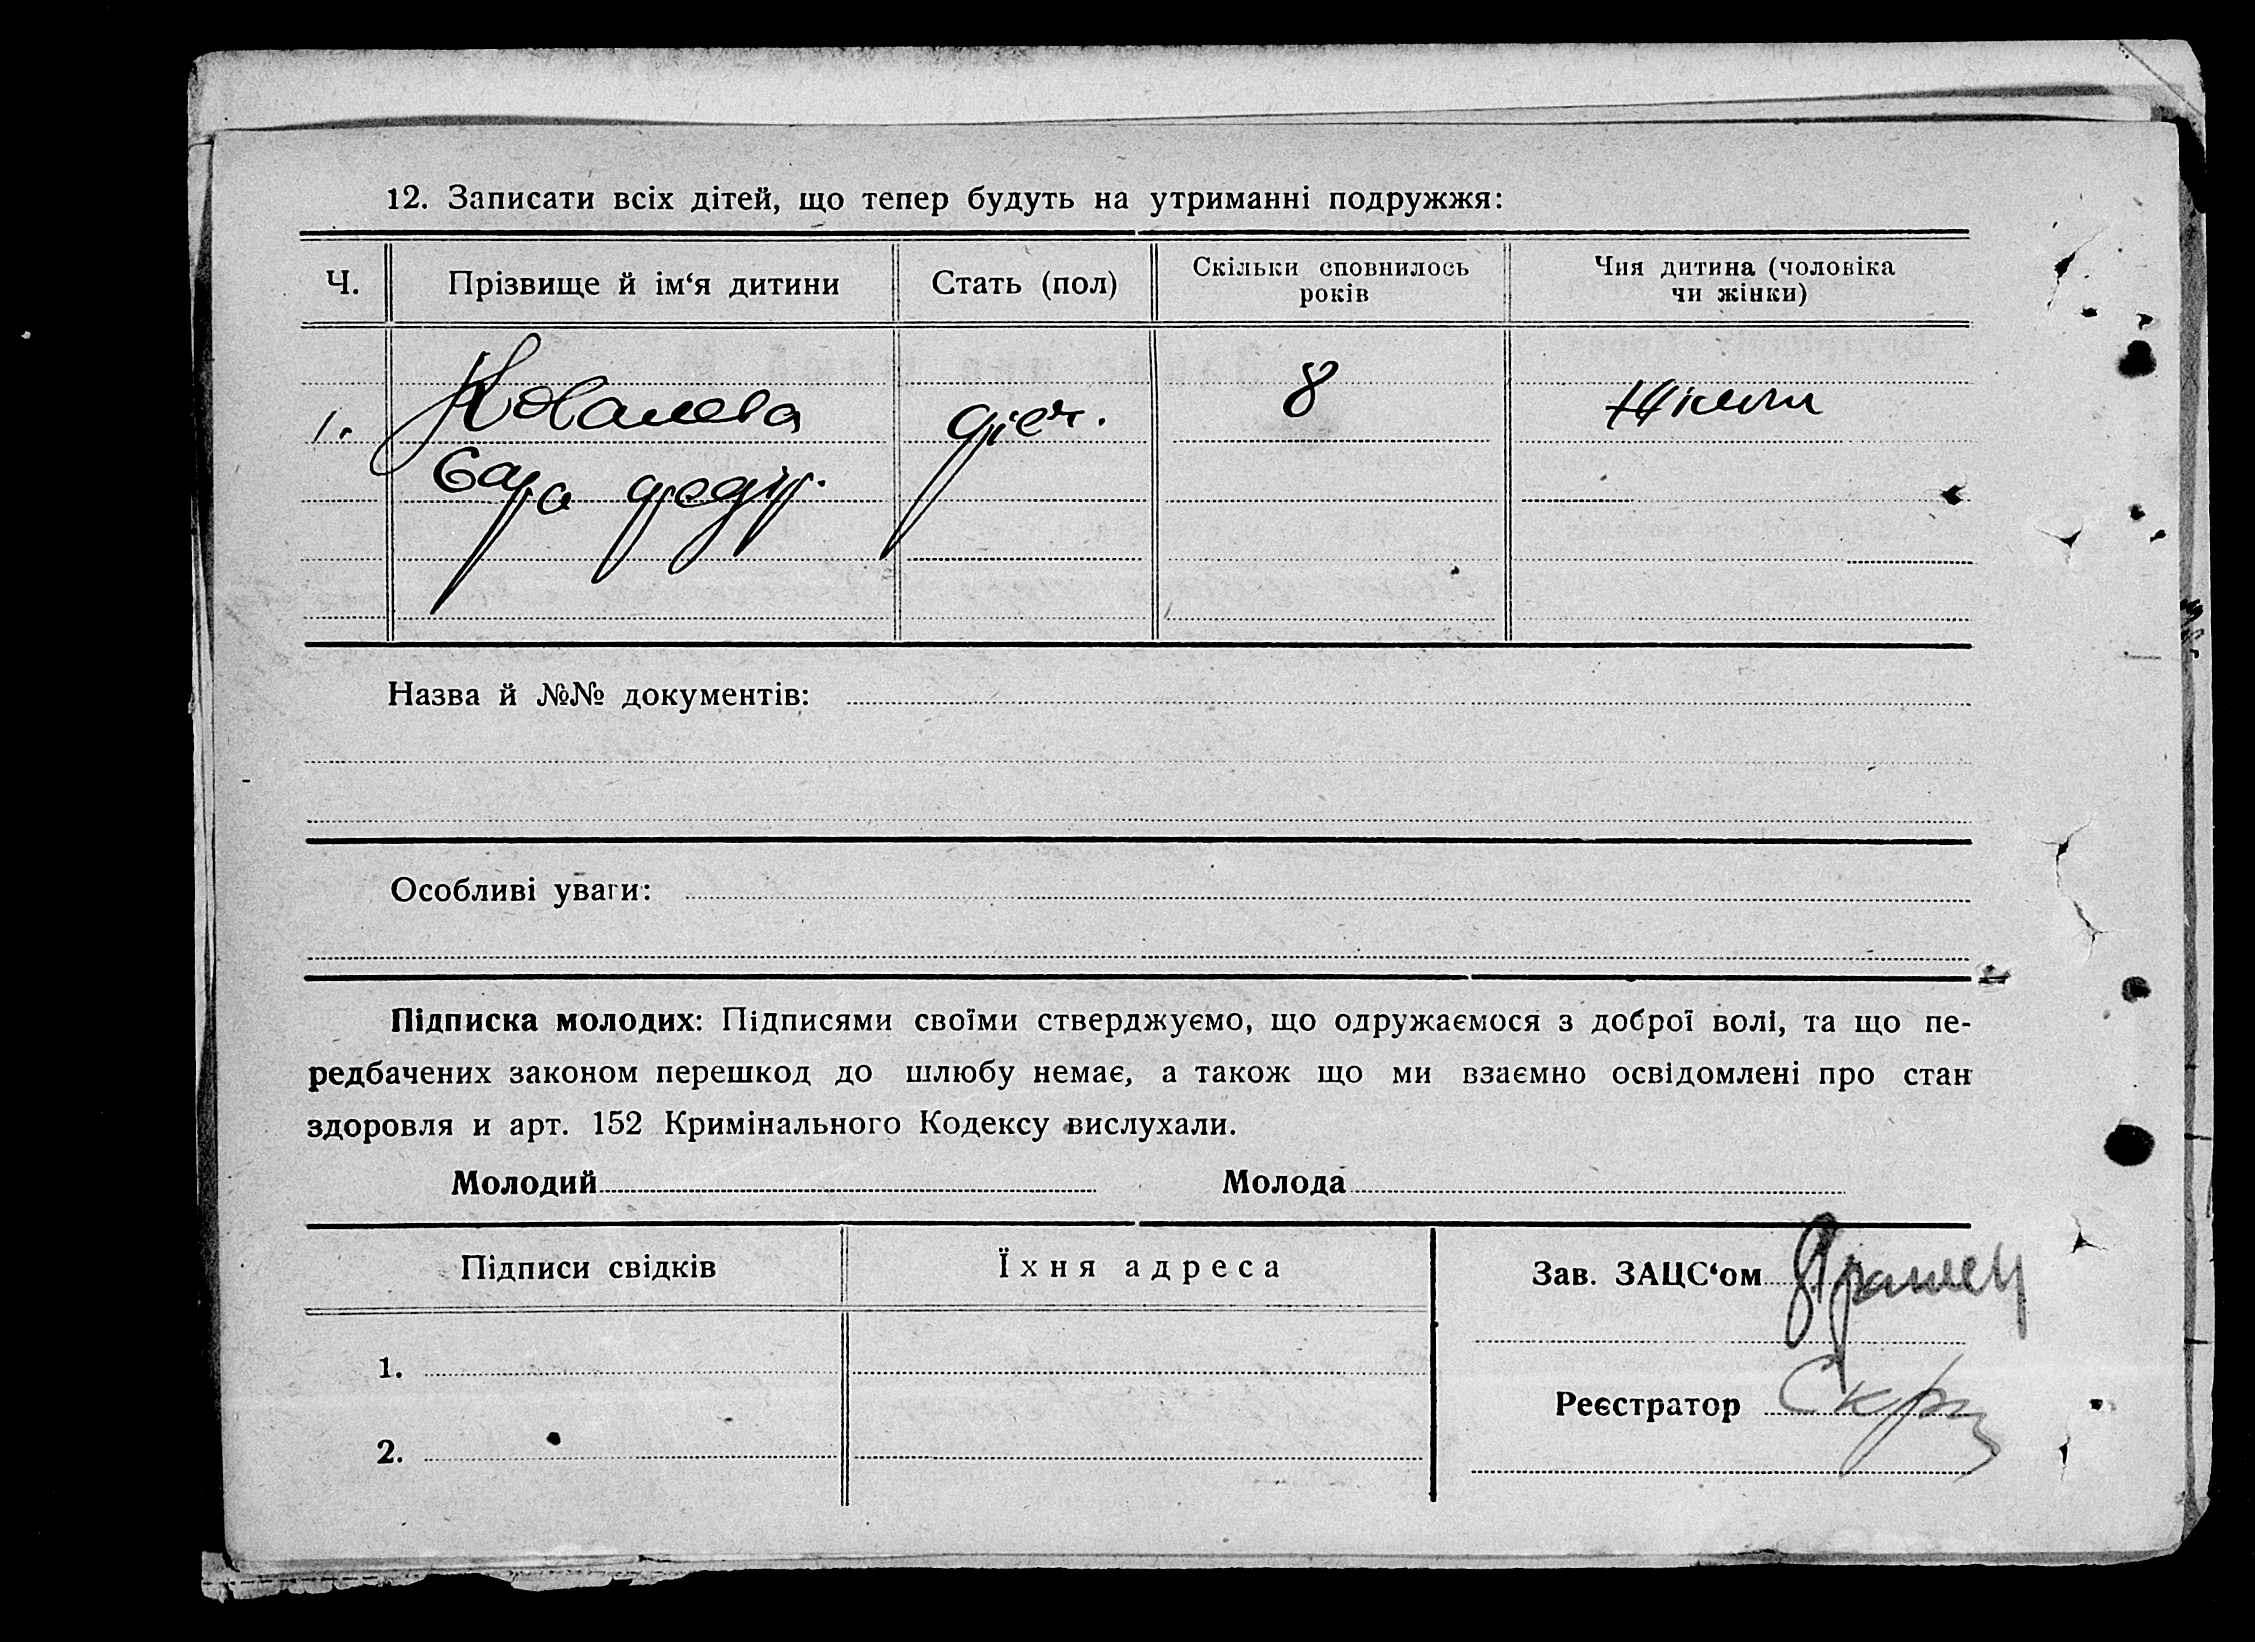 12. Записати всіх дітей, що тепер будуть на утриманні подружжя:
Ч. Прізвище й ім‘я дитини Стать (пол) Скільки сповнилось років Чия дитина (чоловіка чи жінки)
1. Ковалева 8 Жінки
Сара
Назва й №№ документів:
Особливі уваги:
Підписка молодих: Підписями своїми стверджуємо, що одружаємося з доброї волі, та що пе-
редбачених законом перешкод до шлюбу немає, а також що ми взаємно освідомлені про стан
здоровля и арт. 152 Кримінального Кодексу вислухали.
Молодий Молода
Підписи свідків Їхня адреса Зав. ЗАЦС‘ом
1.
Реєстратор
2.